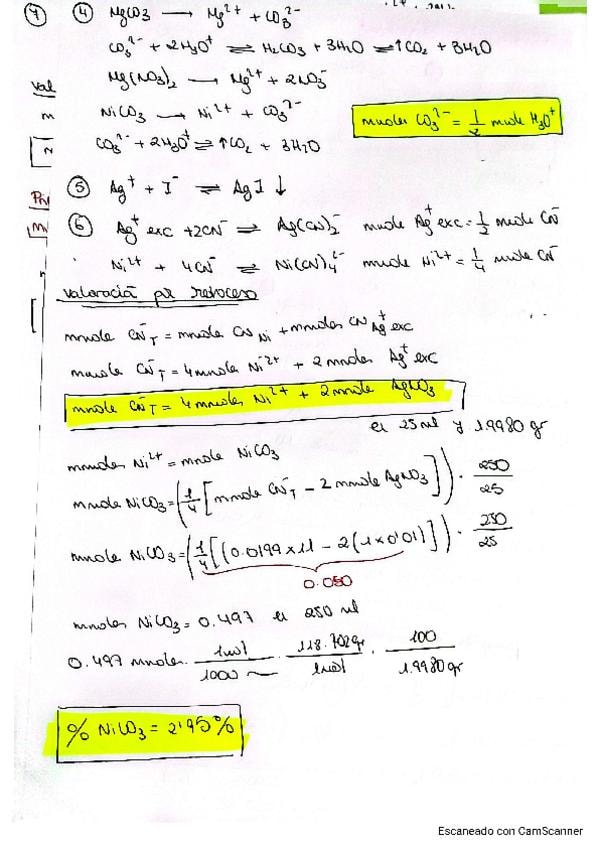 7 4 MgCO3 → Mg2+ + CO3 2-
CO3 2- + 2H3O+ ⇌ H2CO3 + 3H2O ⇌ ↑CO2 + 3H2O
Mg(NO3)2 → Mg2+ + 2NO3-
Val
NiCO3 → Ni2+ + CO3 2-
mmoles CO3 2- = 1/2 mmole H3O+
CO3 2- + 2H3O+ ⇌ ↑CO2 + 3H2O
5 Ag+ + I- ⇌ AgI ↓
6 Ag+ exc + 2CN- ⇌ Ag(CN)2- mmole Ag+ exc = 1/2 mmole CN-
Ni2+ + 4CN- ⇌ Ni(CN)4 2- mmole Ni2+ = 1/4 mmole CN-
Valoración por retroceso
mmole CN-T = mmole CN Ni + mmoles CN Ag+ exc
mmole CN-T = 4 mmoles Ni2+ + 2 mmoles Ag+ exc
mmole CN-T = 4 mmoles Ni2+ + 2 mmole AgNO3
en 25 ml y 1.9980 gr
mmoles Ni2+ = mmole NiCO3
mmole NiCO3 = (1/4 [mmole CN-T - 2 mmole AgNO3]) · 250/25
mmole NiCO3 = (1/4 [(0.0199 x 11 - 2(1 x 0'01)]) · 250/25
0.050
mmoles NiCO3 = 0.497 en 250 ml
0.497 mmoles · 1mol/1000 · 118.702gr/1mol · 100/1.9980 gr
% NiCO3 = 2'95%
Escaneado con CamScanner